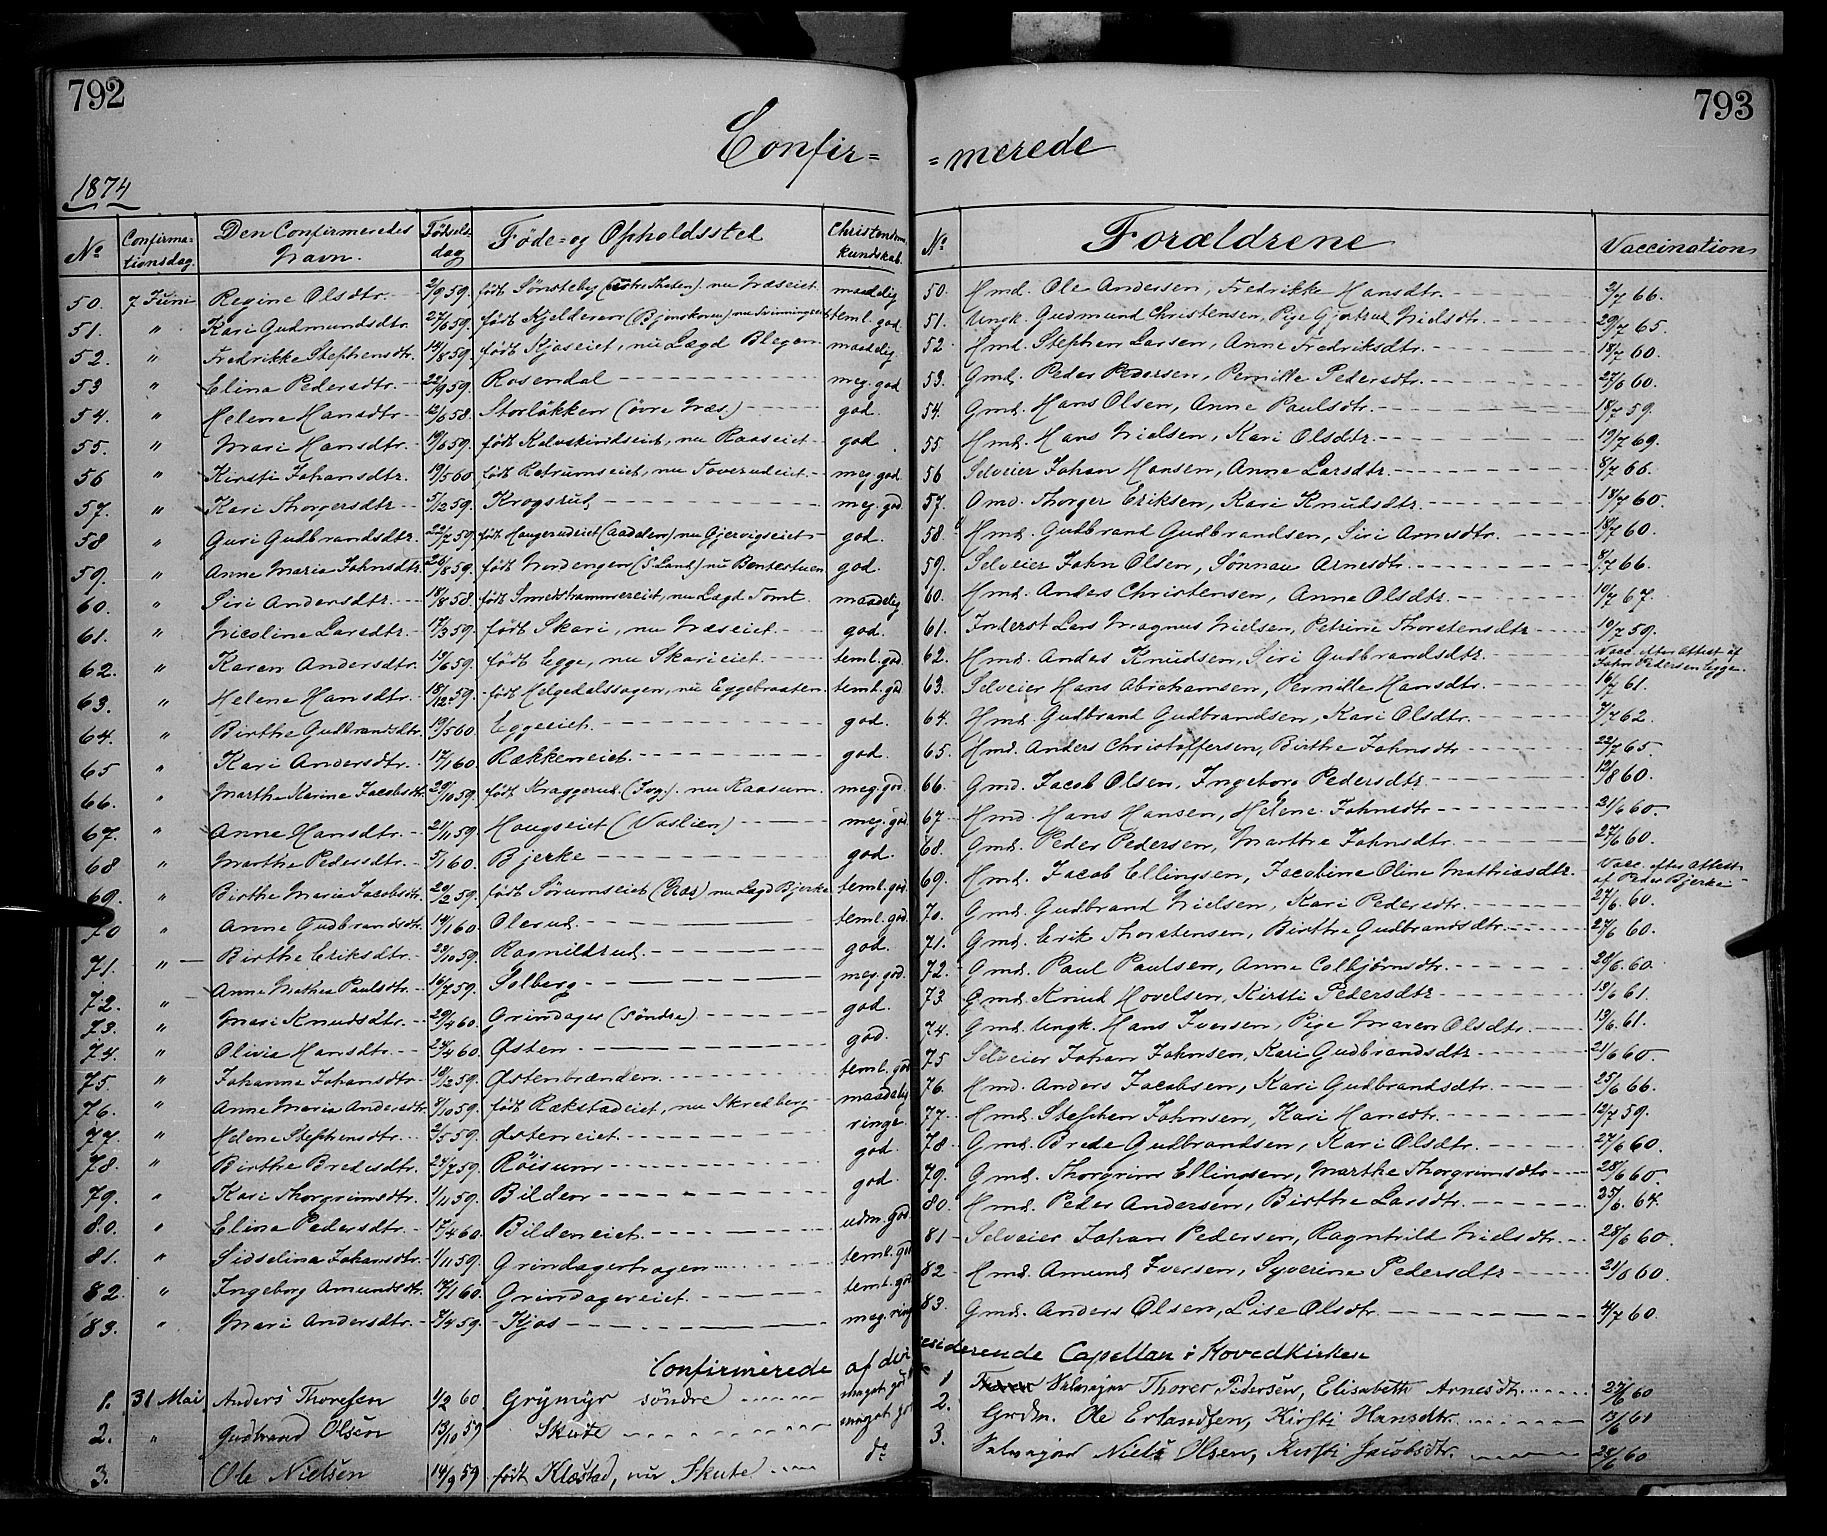 792
793
Confir=
=merede
1874
No
Confirma-
tionsdag.
Den Confirmeredes
Navn.
Fødsels
dag
Føde- og Opholdssted
Christendoms
kundskab.
No
Forældrene
Vaccination
50. 7 Juni Regine Olsdtr. 2/9 59. født Sønsteby nu Næseiet maadelig
51. " Kari Gudmundsdtr. 27/6 59. født Kjelderen (Bjoneskoven) nu teml. god
52. " Fredrikke Stephensdtr. 14/8 59. født Kjoseiet, nu Lægd Blegen maadelig
53 " Elina Pedersdtr. 22/9 59. Rosendal meg. god
54. " Helene Hansdtr. 12/6 58. Storløkken (øvre Næs.) god.
55. " Mari Hansdtr. født Kalvskindseiet, nu Raaseiet god
56 " Kirsti Johansdtr. 19/5 60 født Retrumseiet, nu Toverudeiet meg. god
57. " Kari Thorgersdtr 5/12 59. Krogsrud meg. god
58 " Guri Gudbrandsdtr. 22/7 59. født Haugerudeiet (Aadalen) nu Gjervigseiet god.
59. " Anne Maria Johnsdtr. 26/8 59. født Nordengen (S. Land) nu Bentestuen god.
60. " Siri Andersdtr. 18/8 58 født Smedshammereiet, nu Lægd Tomt. maadelig
61. " Nicoline Larsdtr. 17/3 59. født Skari, nu Næseiet. god.
62. " Karen Andersdtr. 19/6 59. født Egge, nu Skarieiet teml. god
63. " Helene Hansdtr. 18/12 59. født Helgedalshagen, nu Eggebraaten teml. god
64. " Birthe Gudbrandsdtr. 19/5 60 Eggeeiet. god.
65 " Kari Andersdtr. 17/1 60 Rækkeneiet. god.
66. " Marthe Karine Jacobsdtr. 29/10 59. født Kraggerud (Jvg.) nu Raasum. meg. god
67. " Anne Hansdtr. 21/11 59 Haugseiet (Naslien) meg. god
68 " Marthe Pedersdtr. 5/1 60. Bjerke god.
69. " Birthe Maria Jacobsdtr. 20/2 59. født Sørumseiet nu Lægd Bjerke teml. god
70 " Anne Gudbrandsdtr. 14/1 60. Olerud. teml. god
71. " Birthe Eriksdtr. 22/10 59. Ragnildrud. god.
72. " Anne Mathea Paulsdtr. 16/7 59. Solberg meg. god.
73. " Mari Knudsdtr. 29/4 60. Grindager (søndre) god.
74. " Olivia Hansdtr. 24/4 60. Østen god.
75. " Johanne Johansdtr. 10/12 59. Østenbrænden. teml. god
76. " Anne Maria Andersdtr. født Rækstadeiet, nu Skredberg maadelig
77. " Helene Stephensdtr. 2/5 59. Østeneiet. ringe
78. " Birthe Bredesdtr. 24/7 59. Röisum god.
79. " Kari Thorgrimsdtr. 1/11 59. Bilden god.
80. " Eline Pedersdtr. 17/4 60. Bildeneiet. udm. god
81. " Sidselina Johansdtr. 1/11 59. Grindagerhagen teml. god
82 " Ingeborg Amundsdtr. 17/1 60. Grindagereiet. teml. god
83. " Mari Andersdtr. 7/4 59. Kjos meg. ring
50. Hmd. Ole Andersen, Fredrikke Hansdtr. 2/7 66.
51. Ungk. Gudmund Christensen, Pige Gjertrud Nielsdtr. 29/7 65.
52 Hmd. Stephen Larsen, Anne Fredriksdtr. 18/7 60.
53. Gmd. Peder Pedersen, Pernille Pedersdtr. 27/6 60.
54. Gmd. Hans Olsen, Anne Paulsdtr. 18/7 59.
55. Hmd. Hans Nielsen, Kari Olsdtr. 19/7 69.
56 Selveier Johan Hansen, Anne Larsdtr. 8/7 66.
57. Gmd. Thorger Eriksen, Kari Knudsdtr. 18/7 60.
58 Hmd. Gudbrand Gudbrandsen, Siri Arnesdtr. 18/7 60.
59. Selveier John Olsen, Sönnau Arnesdtr. 8/7 66.
60. Hmd. Anders Christensen, Anne Olsdtr. 10/7 67.
61. Inderst Lars Magnus Nielsen, Petrine Thorstensdtr 10/7 59.
62. Hmd. Anders Knudsen, Siri Gudbrandsdtr. Vacc. efter Attest af
John Pedersen Egge.
63. Selveier Hans Abrahamsen, Pernille Hansdtr. 16/7 61.
64. Hmd. Gudbrand Gudbrandsen, Kari Olsdtr. 7/7 62.
65. Hmd. Anders Christoffersen, Birthe Johnsdtr 22/7 65
66. Gmd. Jacob Olsen, Ingeborg Pedersdtr. 12/8 60.
67. Hmd. Hans Hansen, Helene Johnsdtr 21/6 60.
68. Gmd. Peder Pedersen, Marthe Johnsdtr. 27/6 60.
69. Hmd. Jacob Ellingsen, Jacobine Oline Mathiasdtr. Vacc. efter Attest
af Peder Bjerke
70. Gmd. Gudbrand Nielsen, Kari Pedersdtr. 27/6 60.
71. Gmd. Erik Thorstensen, Birthe Gudbrandsdtr. 27/6 60.
72. Gmd. Paul Paulsen, Anne Colbjørnsdtr. 20/6 60.
73. Gmd. Knud Hovelsen, Kirsti Pedersdtr 13/6 61.
74. Gmd. Ungk. Hans Iversen, Pige Maren Olsdtr. 13/6 61.
75 Selveier Johan Johnsen, Kari Gudbrandsdtr 21/6 60.
76. Hmd. Anders Jacobsen, Kari Gudbrandsdtr. 25/6 66.
77. Hmd. Stephen Johnsen, Kari Hansdtr. 12/7 59.
78. Gmd. Brede Gudbrandsen, Kari Olsdtr. 27/6 60.
79. Gmd. Thorgrim Ellingsen, Marthe Thorgrimsdtr 28/6 60.
80. Hmd. Peder Andersen, Birthe Larsdtr. 25/6 64.
81 Selveier Johan Pedersen, Ragnhild Nielsdtr. 28/6 60.
82 Hmd. Amund Iversen, Syverine Pedersdtr 21/8 60.
83. Gmd. Anders Olsen, Lise Olsdtr. 4/7 60.
Confirmerede af den residerende Capellan i Hovedkirken
1. 31 Mai Anders Thoresen 1/2 60 Grymyr söndre meget god
2. " Gudbrand Olsen 13/10 59 Skute meget god
3. Ole Nielsen 14/9 59 født Klæstad, nu Skute do
1 Selveier Thorer Pedersen, Elisabeth Arnesdtr. 27/6 60
2. Grdm. Ole Erlandsen, Kirsti Hansdtr. 13/6 61
3. Selveier Niels Olsen, Kirsti Jacobsdtr. 28/6 60